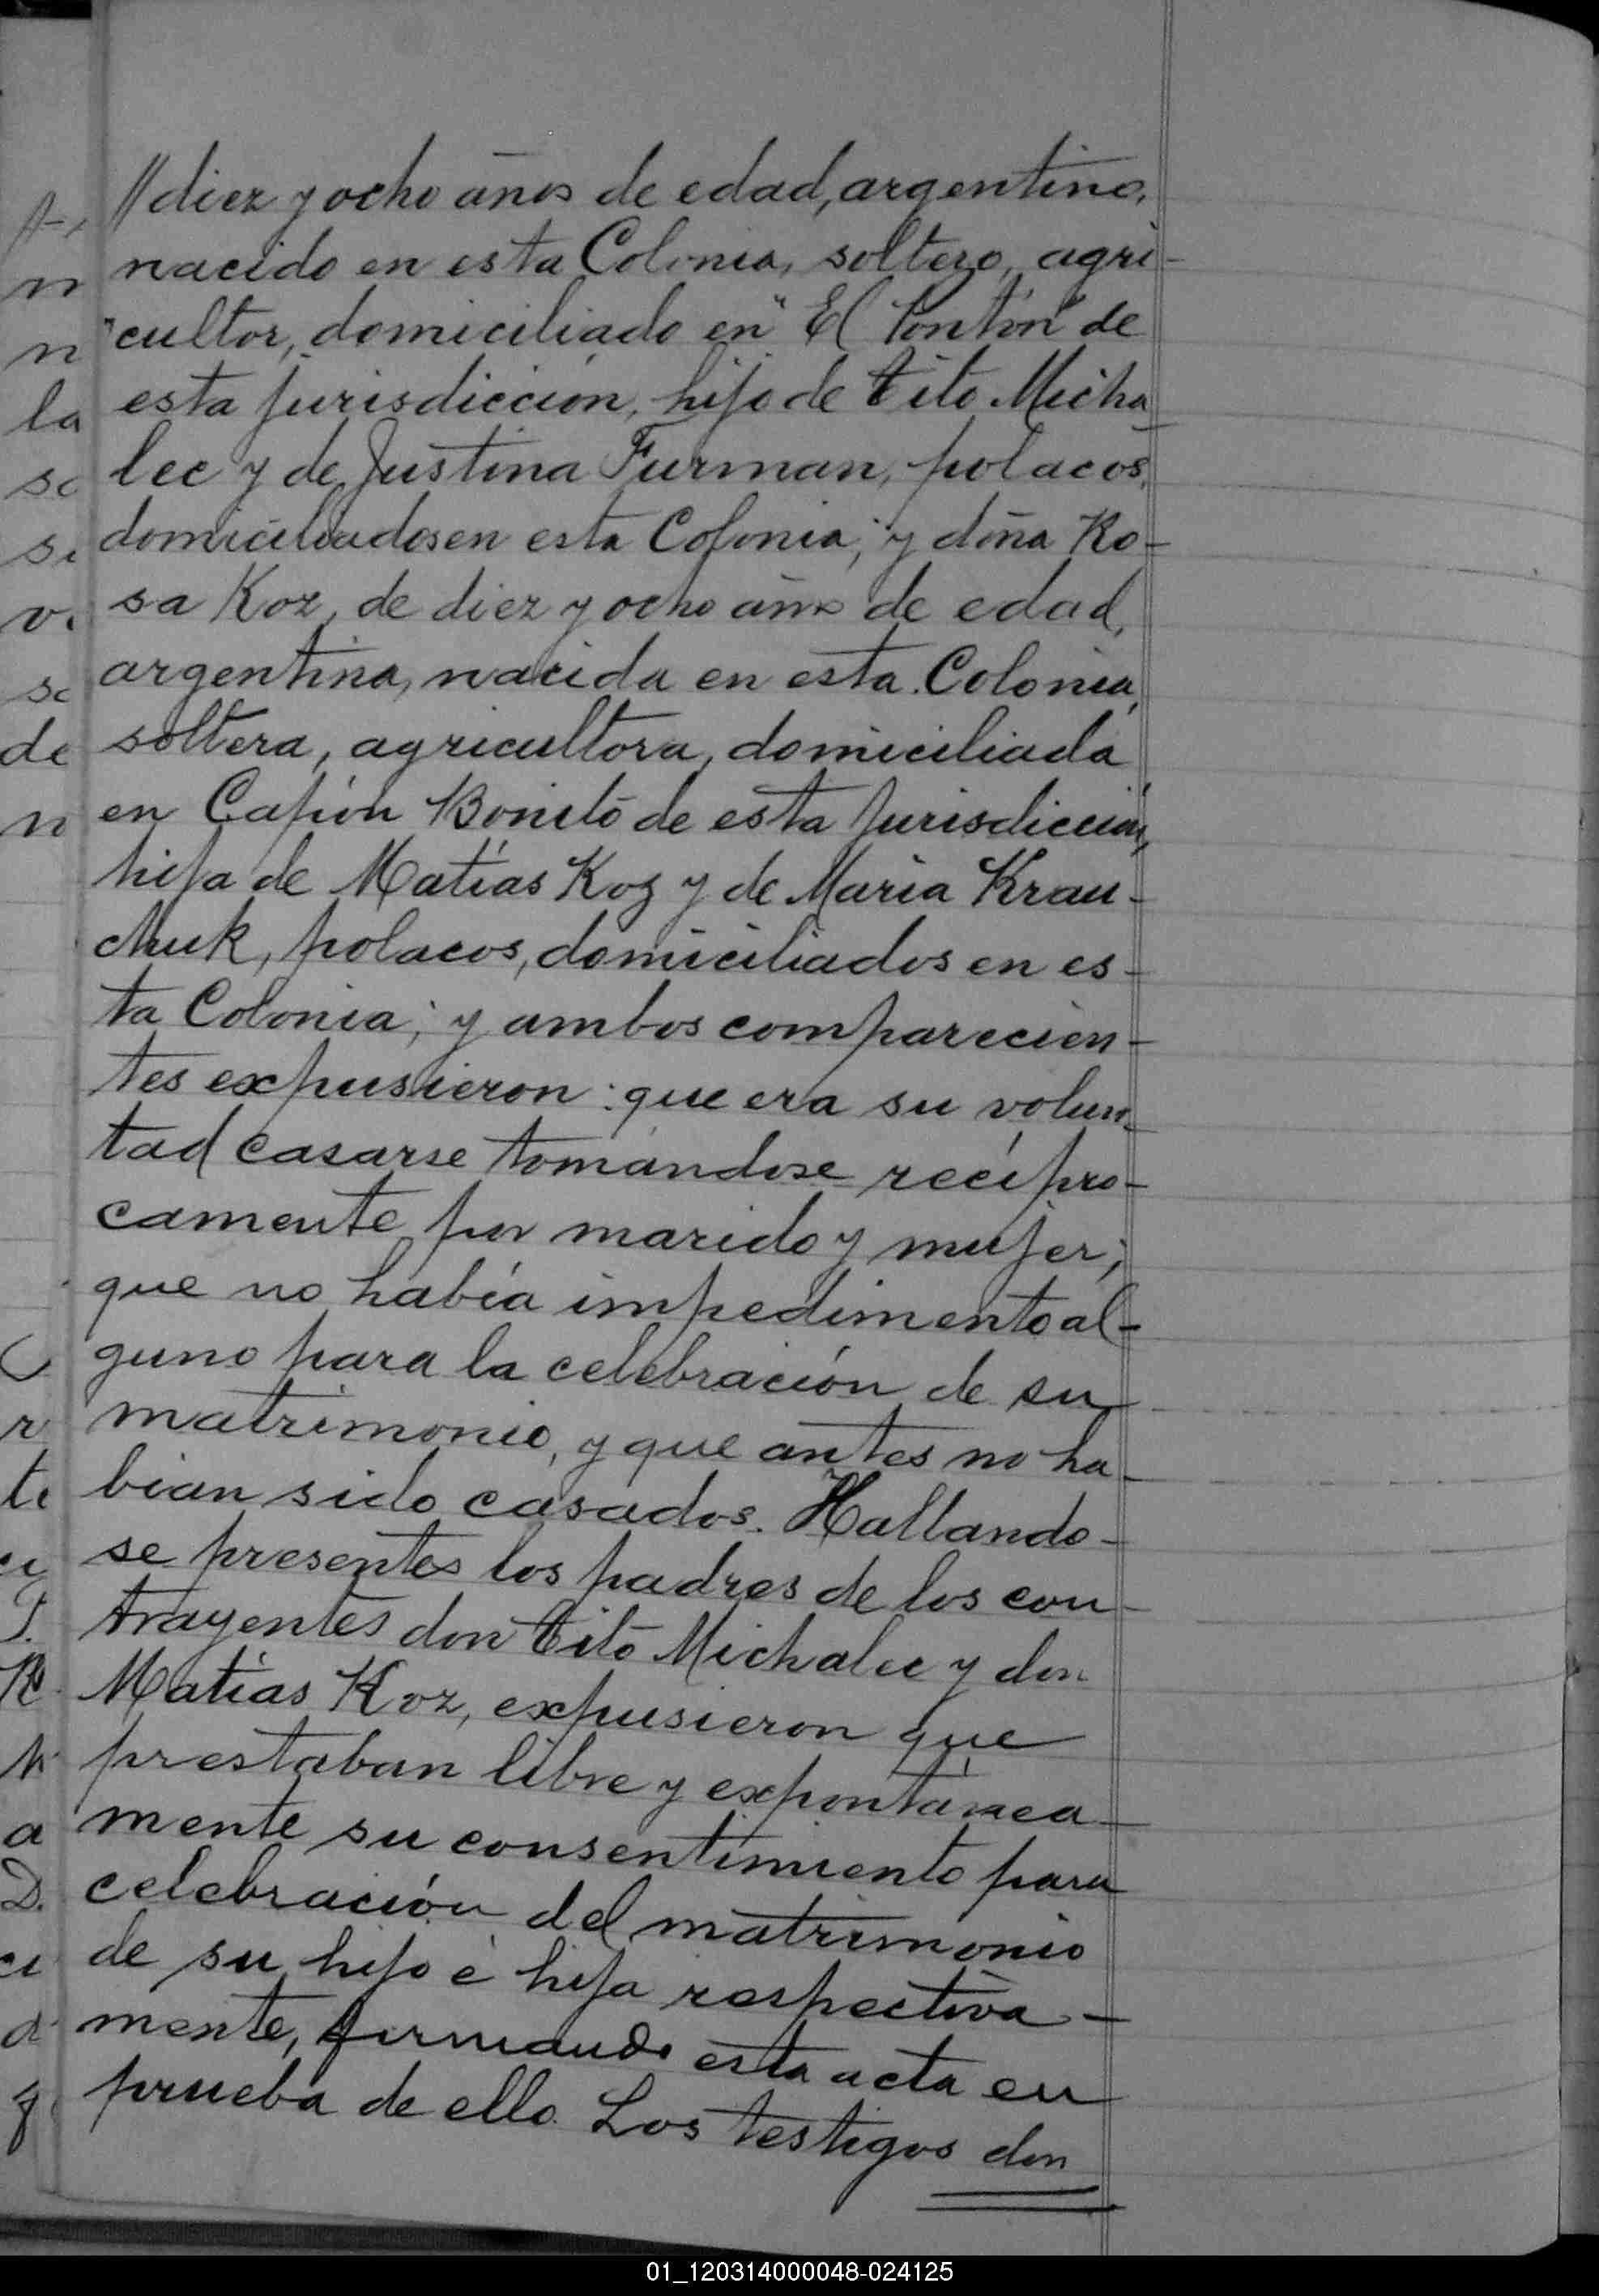 //diez y ocho años de edad, argentino,
nacido en esta Colonia, soltero, agri-
cultor, domiciliado en "El Pontón" de
esta jurisdicción, hijo de Tito Micha-
lec y de Justina Furman, polacos,
domiciliados en esta Colonia; y doña Ro-
sa Koz, de diez y ocho años de edad,
argentina, nacida en esta Colonia,
soltera, agricultora, domiciliada
en Capón Bonito de esta jurisdicción,
hija de Matías Koz y de María Krau-
chuk, polacos, domiciliados en es-
ta Colonia; y ambos comparecien-
tes expusieron: que era su volun-
tad casarse tomándose recípro-
camente por marido y mujer;
que no había impedimento al-
guno para la celebración de su
matrimonio, y que antes no ha-
bían sido casados. Hallando-
se presentes los padres de los con-
trayentes don Tito Michalec y don
Matías Koz, expusieron que
prestaban libre y expontánea-
mente su consentimiento para
celebración del matrimonio
de su hijo é hija respectiva-
mente, firmando esta acta en
prueba de ello. Los testigos don
01_120314000048-024125